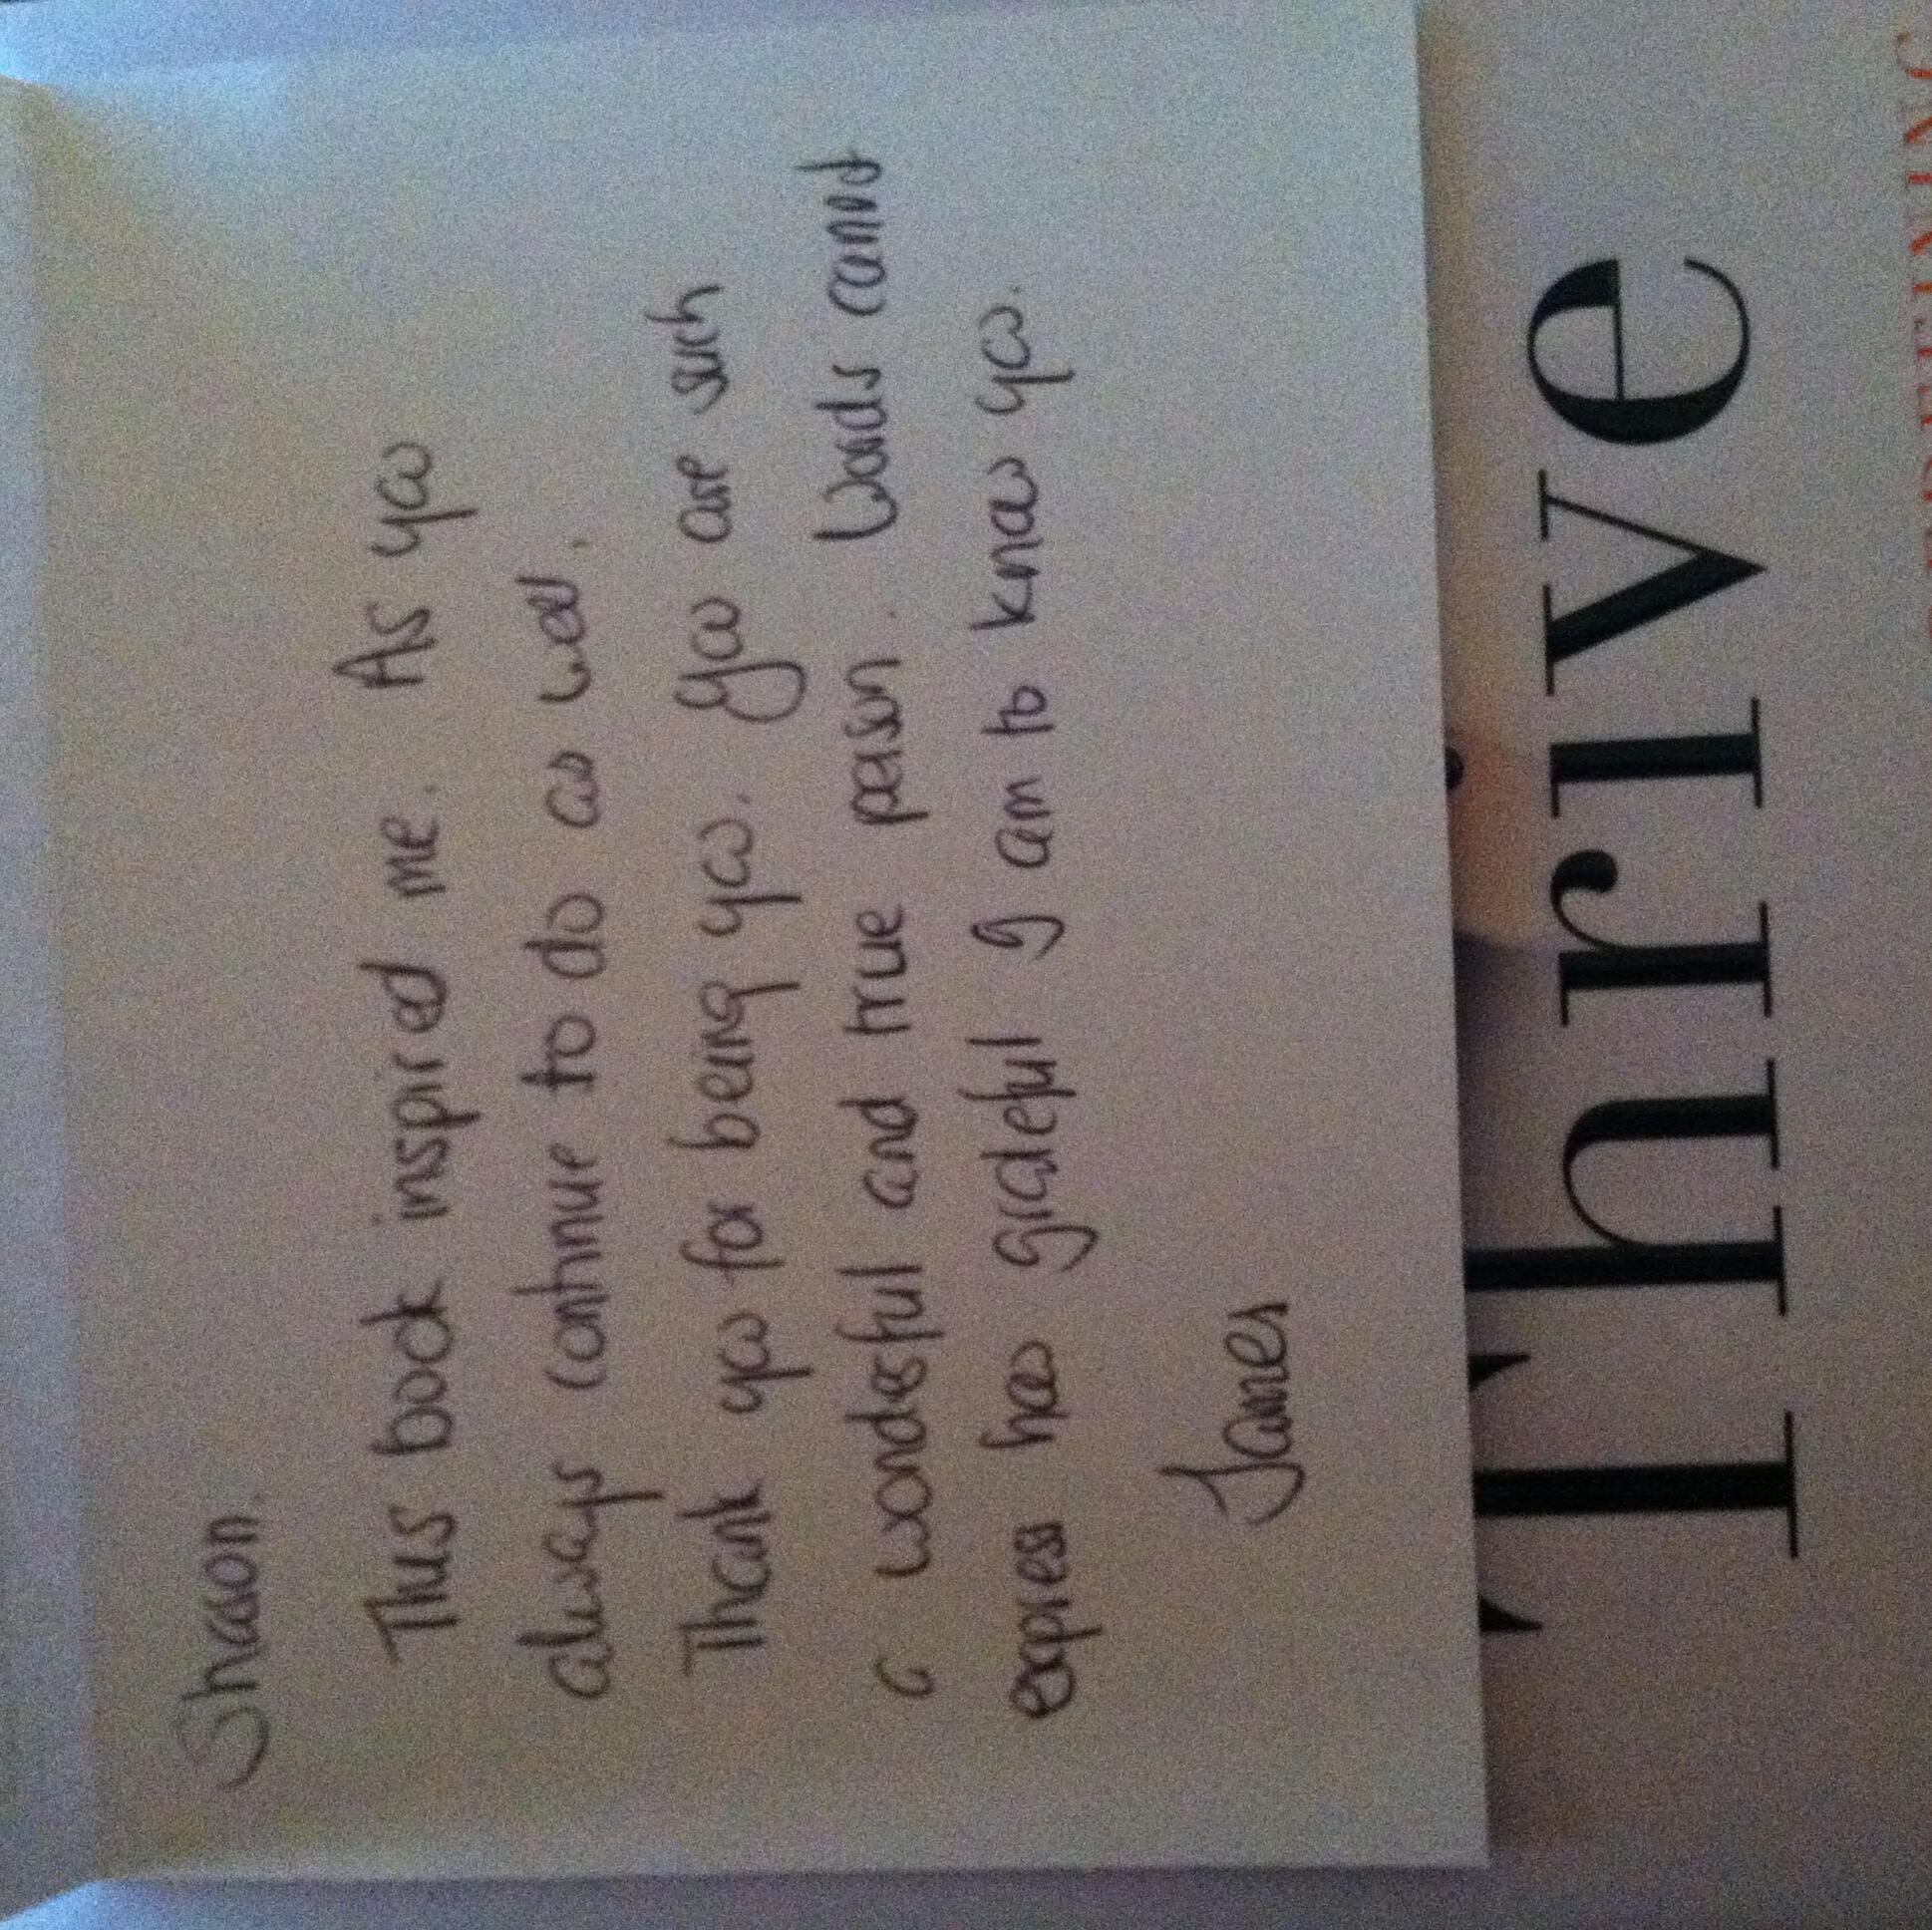 Sharon.
This book inspired me. As you
always continue to do as well.
Thank you for being you. You are such
a wonderful and true person. Words cannot
express how grateful I am to know you.
James
Thrive